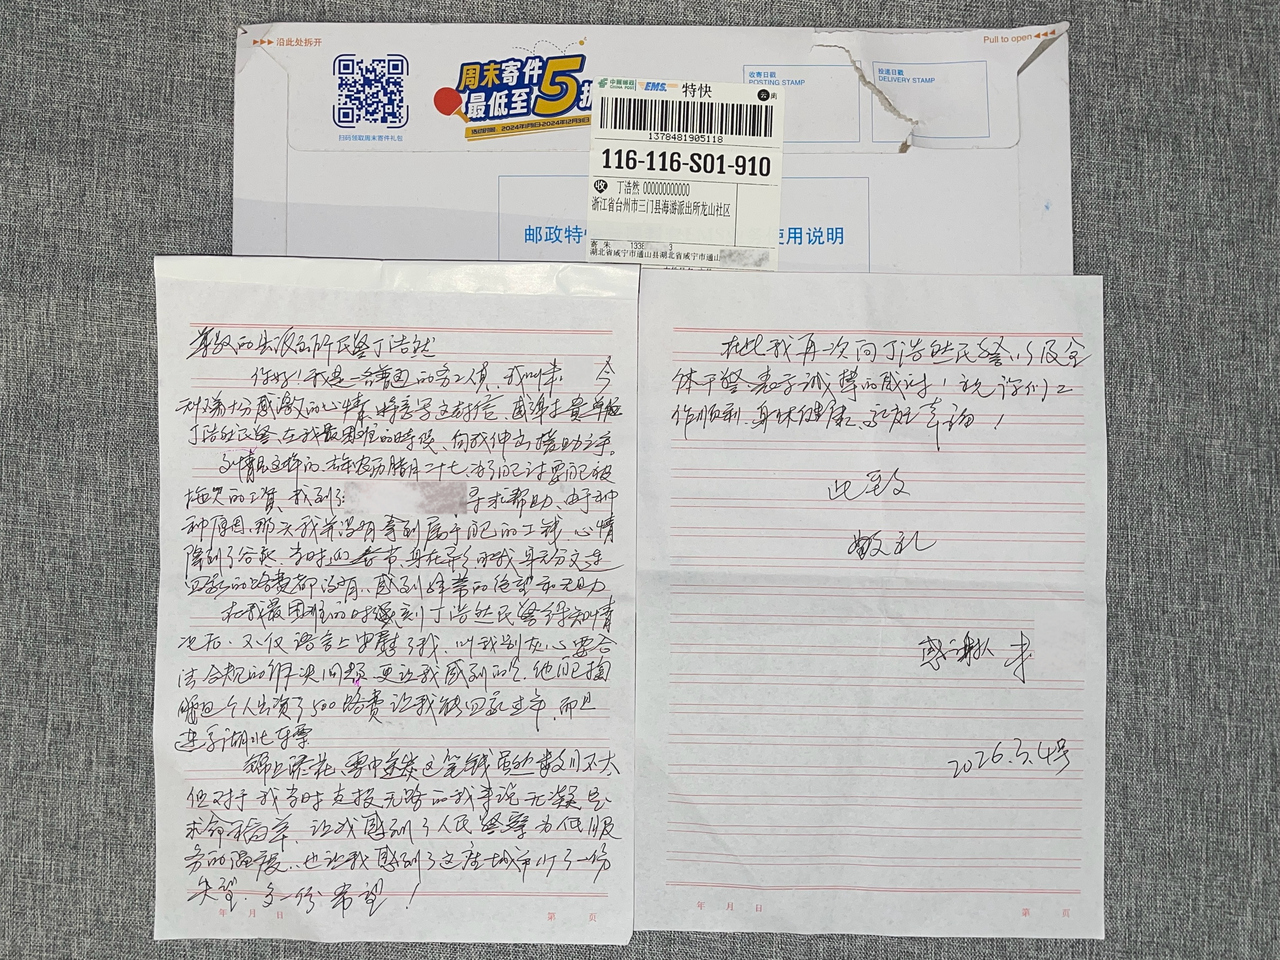 沿此处拆开
Pull to open
周末寄件
最低至5折
活动日期:2024年1月1日-2024年12月31日
扫码领取周末寄件礼包
中国邮政
CHINA POST
EMS
特快
收寄日戳
POSTING STAMP
投递日戳
DELIVERY STAMP
1378481905118
116-116-S01-910
收 丁浩然 000000000000
浙江省台州市三门县海游派出所龙山社区
寄 朱 1338 3
湖北省咸宁市通山县湖北省咸宁市通山
邮政特快
使用说明
尊敬的出派所民警丁浩然
你好!我是一名普通的务工人员,我叫朱 今
天怀着十分感激的心情,特意写这封信,感谢贵单位
丁浩然民警,在我最困难的时候,向我伸出援助之手。
事情是这样的,去年农历腊月二十七,为了自己讨要自己被
拖欠的工资,我到了 寻求帮助,由于种
种原因,那天我并没有拿到属于自己的工钱,心情
降到了谷底,当时临近春节,身在异乡的我身无分文,连
回家的路费都没有,感到非常的绝望和无助
在我最困难的时候刻丁浩然民警得知情
况后,不仅语言上安慰了我,叫我别灰心要合
法合规的解决问题,更让我感到的是,他自掏
腰包个人出资了500路费让我能回家过年,而且
送了湖北车票
锦上添花,雪中送炭这笔钱虽然数门不大
但对于我当时走投无路的我来说无凝是
救命稻草,让我感到了人民警察为人民服
务的温度,也让我感到了这座城市少了一份
失望,多一份希望!
在此我再次向丁浩然民警,以及全
体干警,表示诚挚的感谢!祝你们工
作顺利,身体健康,永远幸福!
此致
敬礼
感谢人 朱
2026.3.4号
年 月 日
第 页
年 月 日
第 页